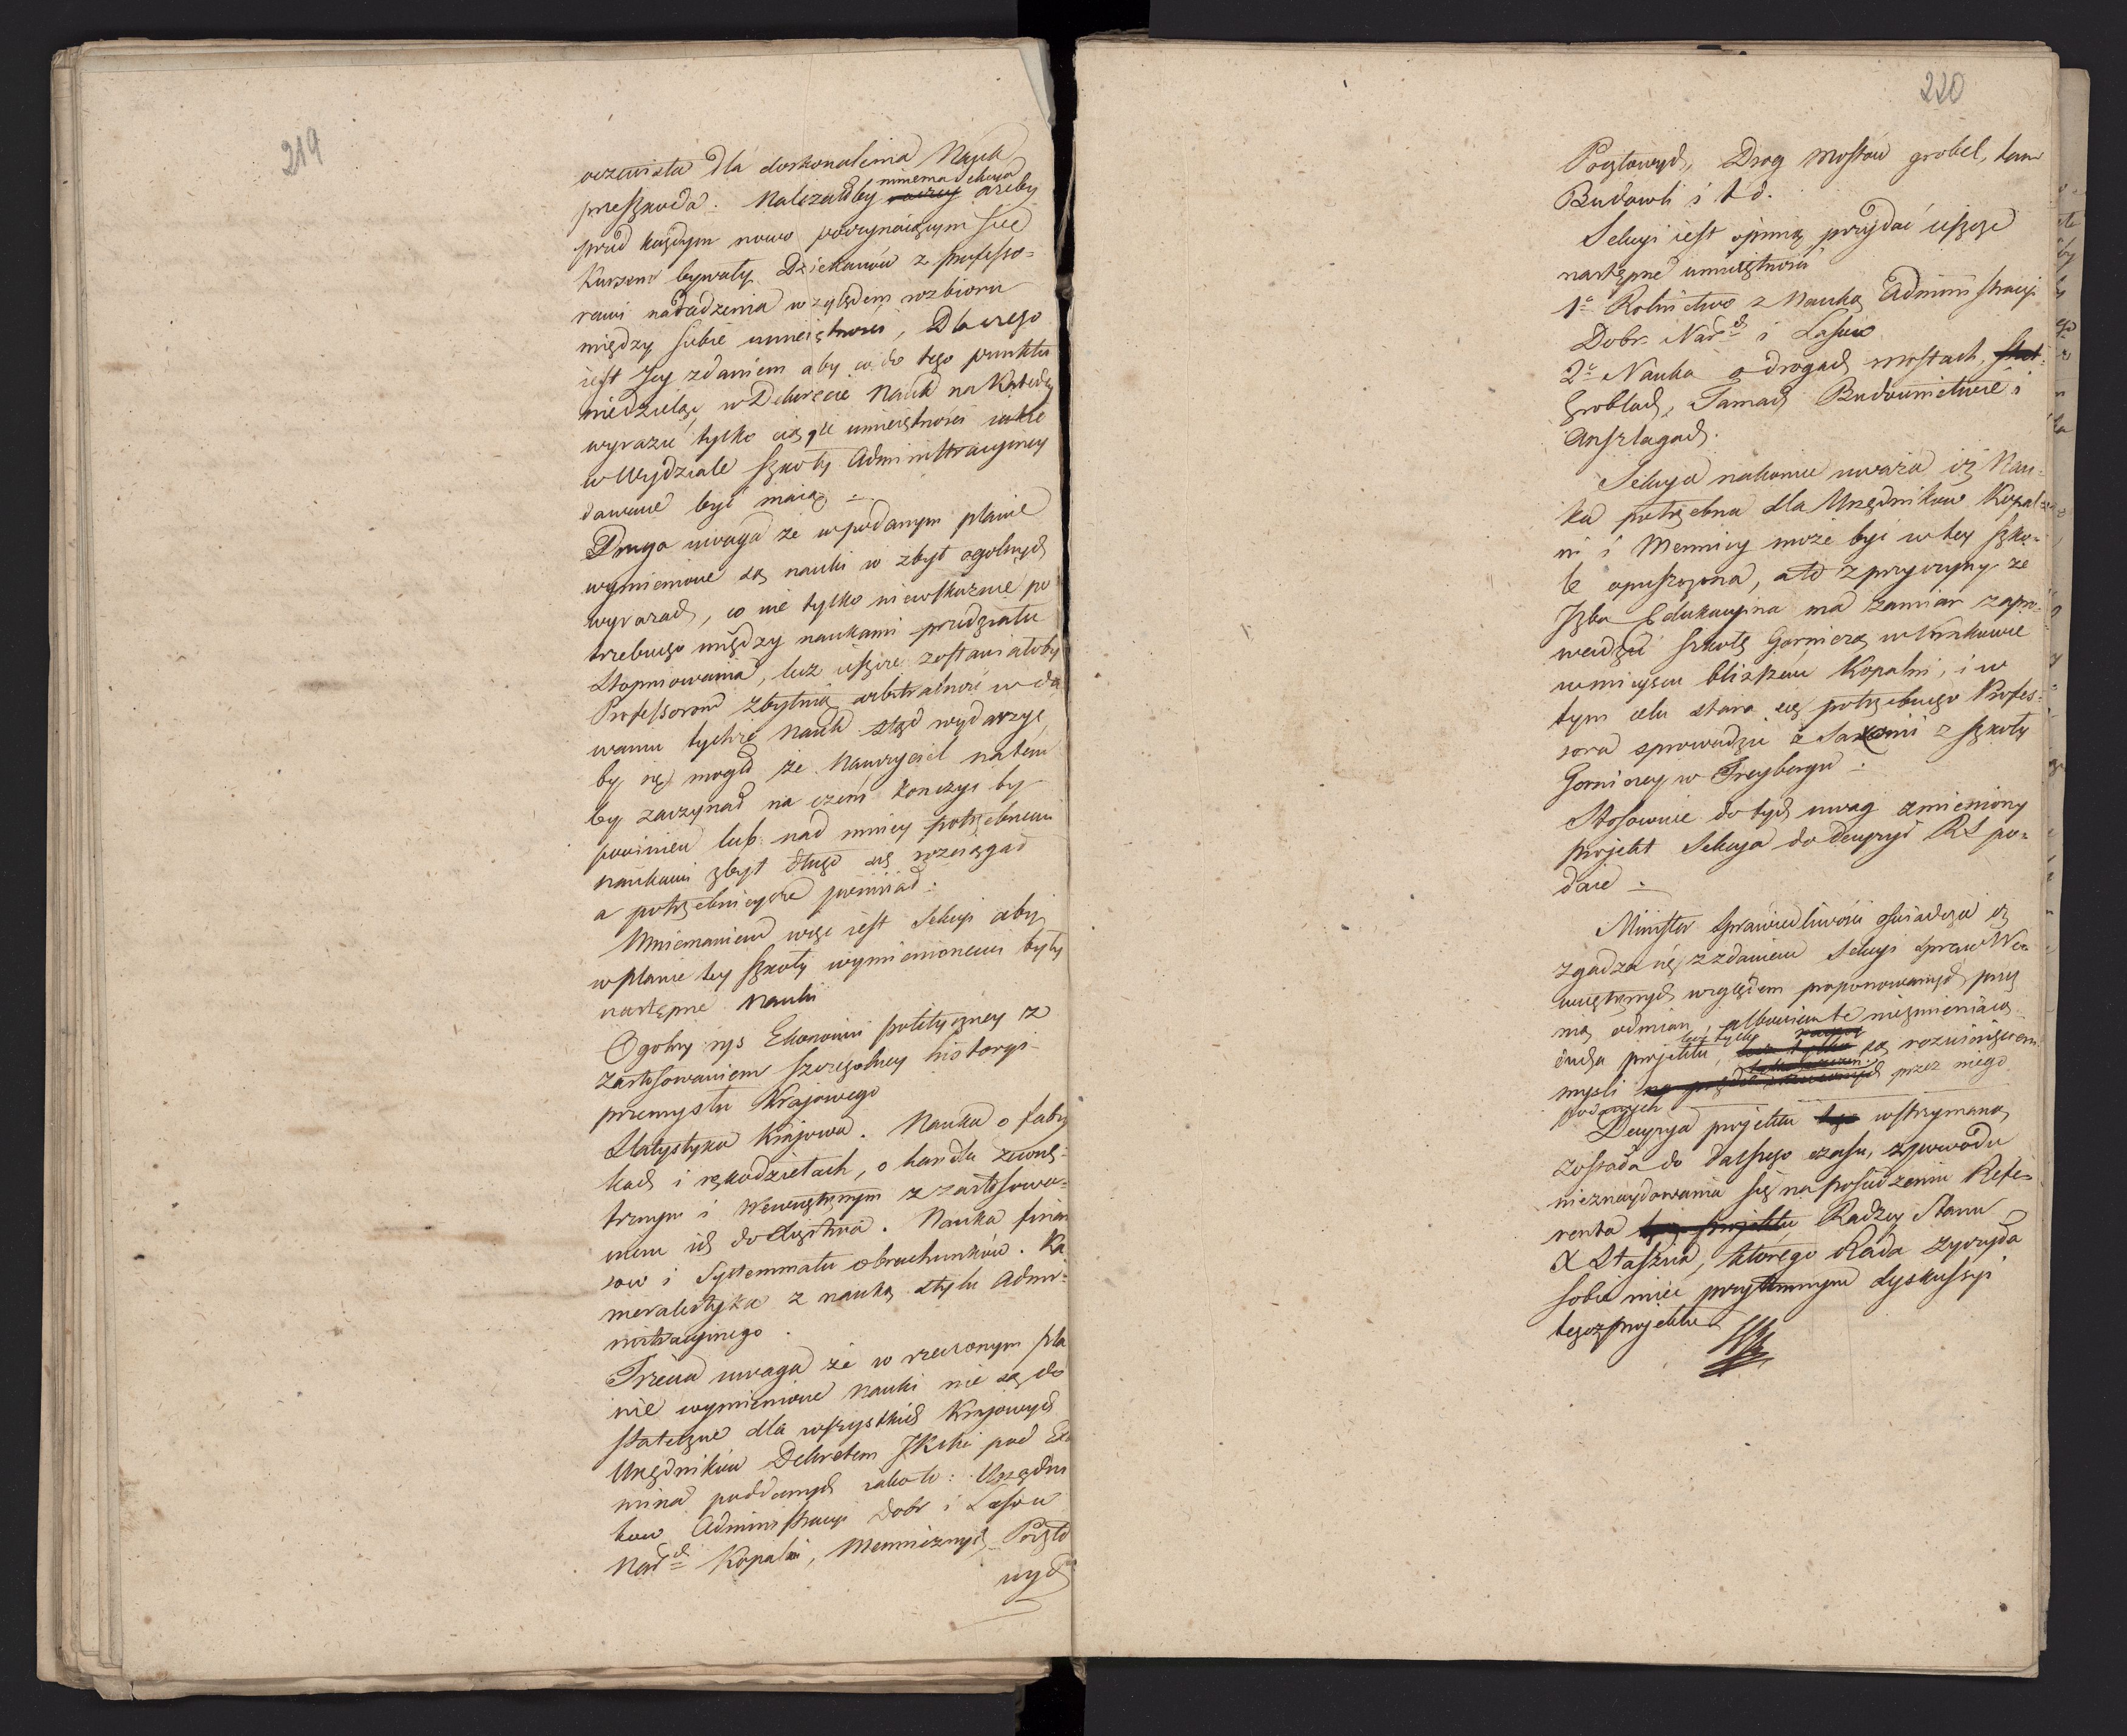 219
oczewista dla doskonalenia Nauk
przeszkoda. Należałoby mniema Sekcya ażeby
przed każdym nowo poczynaiącym się
Kursem bywały Dziekanów z professo-
rami naradzenia względem rozbioru
między siebie umieiętności, Dla czego
iest Jey zdaniem aby co do tego punktu
niedzieląc w Dekrecie Nauk na Katedry
wyrazić tylko ciągłe umieiętności iakie
w Wydziale szkoły Administracyiney
dawane być maią.
Druga uwaga że w podanym planie
wymienione są nauki w zbyt ogolnych
wyrazach, co nie tylko niewskazuie po
trzebnego między naukami przedziału
stopniowania, lecz ieszcze zostawiałoby
Professorom zbytnią arbitralność w da
waniu tychże Nauk stąd wydarzyć
by się mogło że Nauczyciel na tem
by zaczynał na czem kończyć by
powinien lub nad mniey potrzebnemi
naukami zbyt długo się rozciągał
a potrzebnieysze pomiiał.
Mniemaniem więc iest Sekcyi aby
w planie tey szkoły wymienionemi były
następne Nauki
Ogolny rys Ekonomii polityczney z
zastosowaniem szczegolney historyi
przemysłu Kraiowego
Statystyka Kraiowa. Nauka o fabry
kach i rękodziełach, o handlu zewnę-
trznym i Wewnętrznym z zastosowa-
niem ich do Xięstwa. Nauka finan
sow i Systemmatu obrachunków. Ka
meralistyka z nauką stylu Admi-
nistracyinego.
Trzecia uwaga że w rzeczonym pla
nie wymienione Nauki nie są do
stateczne dla wszystkich Kraiowych
Urzędników Dekretem JKMci pod Exa
mina poddanych iakoto: Urzędni
kow Administracyi Dobr i Lasow
Nardch Kopalni, Menniczych Poczto
wych
220
Pocztowych, Drog Mostow grobel, tam
Budowli i td.
Sekcyi iest opinią przydać ieszcze
następne umieiętności
1o Rolnictwo z Nauką Administracyi
Dobr Nardch i Lasow
2o Nauka o drogach mostach,
Groblach, Tamach Budownictwie i
Anszlagach.
Sekcya nakoniec uważa iż Nau-
ka potrzebna dla Urzędnikow Kopal-
ni i Mennicy może być w tey szko-
le opuszczona, a to z przyczyny że
Jzba Edukacyina ma zamiar zapro-
wadzić szkołę Gorniczą w Krakowie
w mieyscu blizkiem Kopalni, i w
tym celu stara się potrzebnego Profes-
sora sprowadzić z Saxonii z szkoły
Gorniczey w Freybergu.
Stosownie do tych uwag zmieniony
projekt Sekcya do decyzyi RS po-
daie.
Minister Sprawiedliwości oświadcza iż
zgadza się z zdaniem Sekcyi Spraw We-
wnętrznych względem proponowanych przez
nią odmian, albowiem te niezmieniaią
ducha projektu, lecz tylko są rozwinięciem
myśli przez niego
podanych
Decyzya projektu wstrzymaną
została do dalszego czasu, z powodu
nieznaydowania się na posiedzeniu Refe-
renta Radzcy Stanu
X Staszica, ktorego Rada życzyła
sobie mieć przytomnym dyskussyi
tegoż projektu